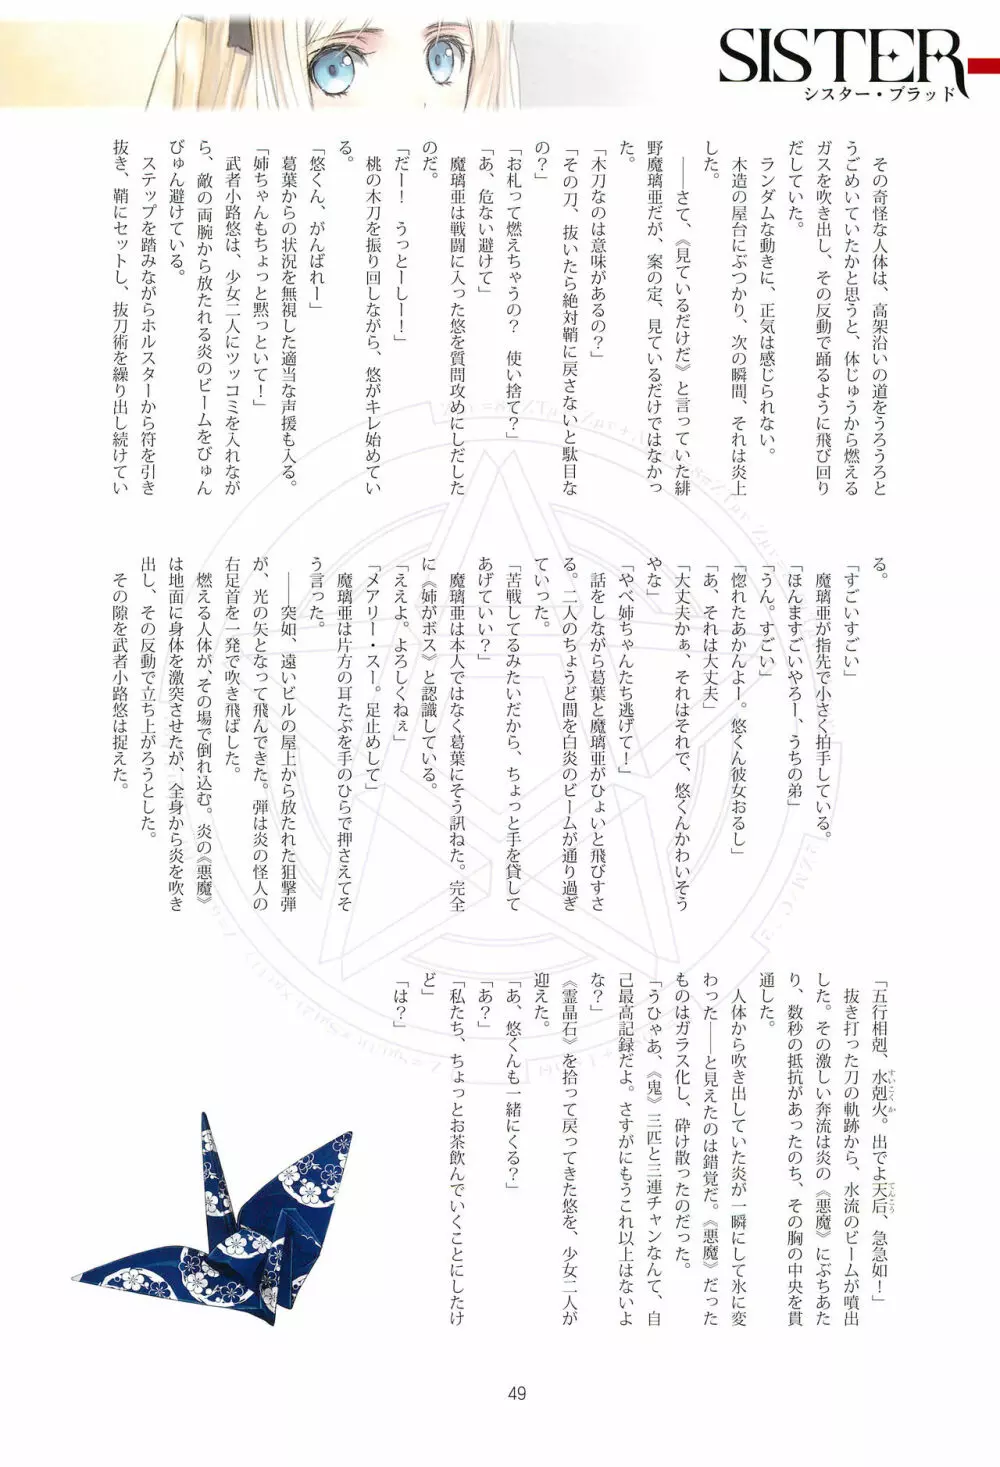 SISTER
シスター・ブラッド
その奇怪な人体は、高架沿いの道をうろうろと
うごめいていたかと思うと、体じゅうから燃える
ガスを吹き出し、その反動で踊るように飛び回り
だしていた。
ランダムな動きに、正気は感じられない。
木造の屋台にぶつかり、次の瞬間、それは炎上
した。
――さて、《見ているだけだ》と言っていた緋
野魔璃亜だが、案の定、見ているだけではなかっ
た。
「木刀なのは意味があるの？」
「その刀、抜いたら絶対鞘に戻さないと駄目な
の？」
「お札って燃えちゃうの？　使い捨て？」
「あ、危ない避けて」
魔璃亜は戦闘に入った悠を質問攻めにしだした
のだ。
「だー！　うっとーしー！」
桃の木刀を振り回しながら、悠がキレ始めてい
る。
「悠くん、がんばれー」
葛葉からの状況を無視した適当な声援も入る。
「姉ちゃんもちょっと黙っといて！」
武者小路悠は、少女二人にツッコミを入れなが
ら、敵の両腕から放たれる炎のビームをびゅん
びゅん避けている。
ステップを踏みながらホルスターから符を引き
抜き、鞘にセットし、抜刀術を繰り出し続けてい
る。
「すごいすごい」
魔璃亜が指先で小さく拍手している。
「ほんますごいやろー、うちの弟」
「うん。すごい」
「惚れたあかんよー。悠くん彼女おるし」
「あ、それは大丈夫」
「大丈夫かぁ、それはそれで、悠くんかわいそう
やな」
「やべ姉ちゃんたち逃げて！」
話をしながら葛葉と魔璃亜がひょいと飛びすさ
る。二人のちょうど間を白炎のビームが通り過ぎ
ていった。
「苦戦してるみたいだから、ちょっと手を貸して
あげていい？」
魔璃亜は本人ではなく葛葉にそう訊ねた。完全
に《姉がボス》と認識している。
「ええよ。よろしくねぇ」
「メアリー・スー。足止めして」
魔璃亜は片方の耳たぶを手のひらで押さえてそ
う言った。
――突如、遠いビルの屋上から放たれた狙撃弾
が、光の矢となって飛んできた。弾は炎の怪人の
右足首を一発で吹き飛ばした。
燃える人体が、その場で倒れ込む。炎の《悪魔》
は地面に身体を激突させたが、全身から炎を吹き
出し、その反動で立ち上がろうとした。
その隙を武者小路悠は捉えた。
「五行相剋、水剋火。出でよ天后、急急如！」
すいこくか
てんこう
抜き打った刀の軌跡から、水流のビームが噴出
した。その激しい奔流は炎の《悪魔》にぶちあた
り、数秒の抵抗があったのち、その胸の中央を貫
通した。
人体から吹き出していた炎が一瞬にして氷に変
わった――と見えたのは錯覚だ。《悪魔》だった
ものはガラス化し、砕け散ったのだった。
「うひゃあ、《鬼》三匹と三連チャンなんて、自
己最高記録だよ。さすがにもうこれ以上はないよ
な？」
《霊晶石》を拾って戻ってきた悠を、少女二人が
迎えた。
「あ、悠くんも一緒にくる？」
「あ？」
「私たち、ちょっとお茶飲んでいくことにしたけ
ど」
「は？」
49